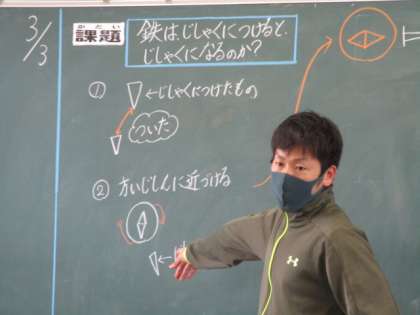 3/3
かだい
課題
鉄は、じしゃくにつけると、
じしゃくになるのか?
① ←じしゃくにつけたもの
ついた
② 方いじしんに近づける
←